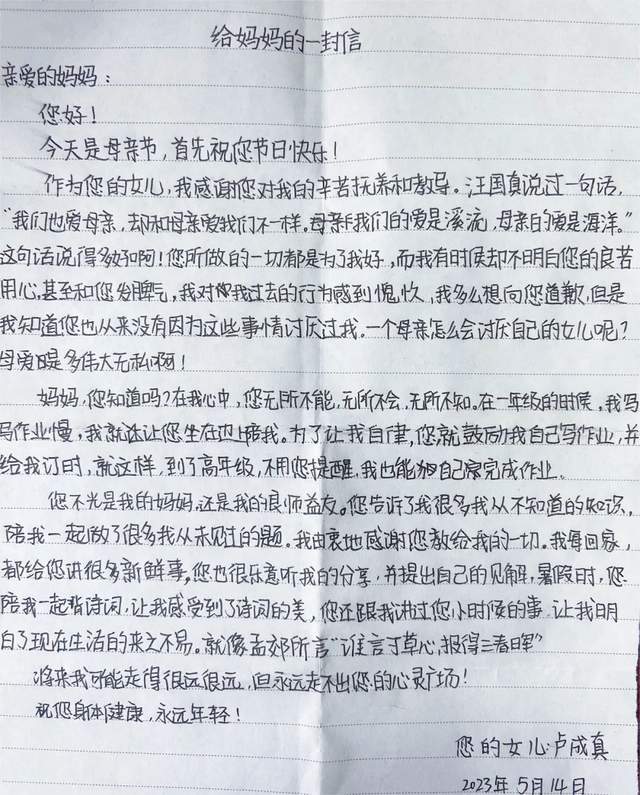 给妈妈的一封信
亲爱的妈妈：
您好！
今天是母亲节，首先祝您节日快乐！
作为您的女儿，我感谢您对我的辛苦抚养和教导。汪国真说过一句话，
“我们也爱母亲，却和母亲爱我们不一样。母亲我们的爱是溪流，母亲的爱是海洋。”
这句话说得多好啊！您所做的一切都是为了我好，而我有时候却不明白您的良苦
用心，甚至和您发脾气，我对我过去的行为感到愧疚，我多么想向您道歉，但是
我知道您也从来没有因为这些事情讨厌过我。一个母亲怎么会讨厌自己的女儿呢？
母爱是多伟大无私啊！
妈妈，您知道吗？在我心中，您无所不能，无所不会，无所不知。在一年级的时候，我写
写作业慢，我就让您坐在边上陪我。为了让我自律，您就鼓励我自己写作业，并
给我订时，就这样，到了高年级，不用您提醒，我也能自己完成作业。
您不光是我的妈妈，还是我的良师益友。您告诉了我很多我从不知道的知识，
陪我一起做了很多我从未见过的题。我由衷地感谢您教给我的一切。我每回家，
都给您讲很多新鲜事，您也很乐意听我的分享，并提出自己的见解，暑假时，您
陪我一起背诗词，让我感受到了诗词的美，您还跟我讲过您小时候的事，让我明
白了现在生活的来之不易。就像孟郊所言“谁言寸草心，报得三春晖”
将来我可能走得很远很远，但永远走不出您的心灵广场！
祝您身体健康，永远年轻！
您的女儿：卢成真
2023年5月14日